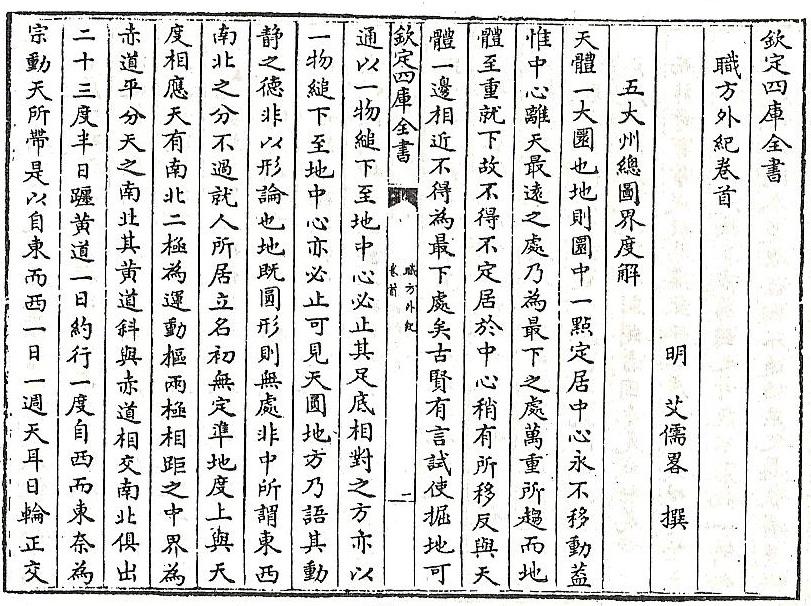 欽定四庫全書
職方外紀卷首
明 艾儒畧 撰
五大州總圖界度解
天體一大圜也地則圜中一點定居中心永不移動蓋
惟中心離天最遠之處乃為最下之處萬重所趨而地
體至重就下故不得不定居於中心稍有所移反與天
體一邊相近不得為最下處矣古賢有言試使掘地可
欽定四庫全書
職方外紀
卷首
一
通以一物縋下至地中心必止其足底相對之方亦以
一物縋下至地中心亦必止可見天圓地方乃語其動
静之德非以形論也地既圓形則無處非中所謂東西
南北之分不過就人所居立名初無定準地度上與天
度相應天有南北二極為運動樞兩極相距之中界為
赤道平分天之南北其黃道斜與赤道相交南北俱出
二十三度半日躔黃道一日約行一度自西而東奈為
宗動天所帶是以自東而西一日一週天耳日輪正交